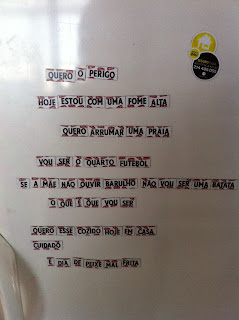 QUERO O PERIGO
HOJE ESTOU COM UMA FOME ALTA
QUERO ARRUMAR UMA PRAIA
VOU SER O QUARTO FUTEBOL
SE A MÃE NÃO OUVIR BARULHO NÃO VOU SER UMA BATATA
O QUE É QUE VOU SER
QUERO ESSE COZIDO HOJE EM CASA
CUIDADO
É DIA DE PEIXE MAL FRITA